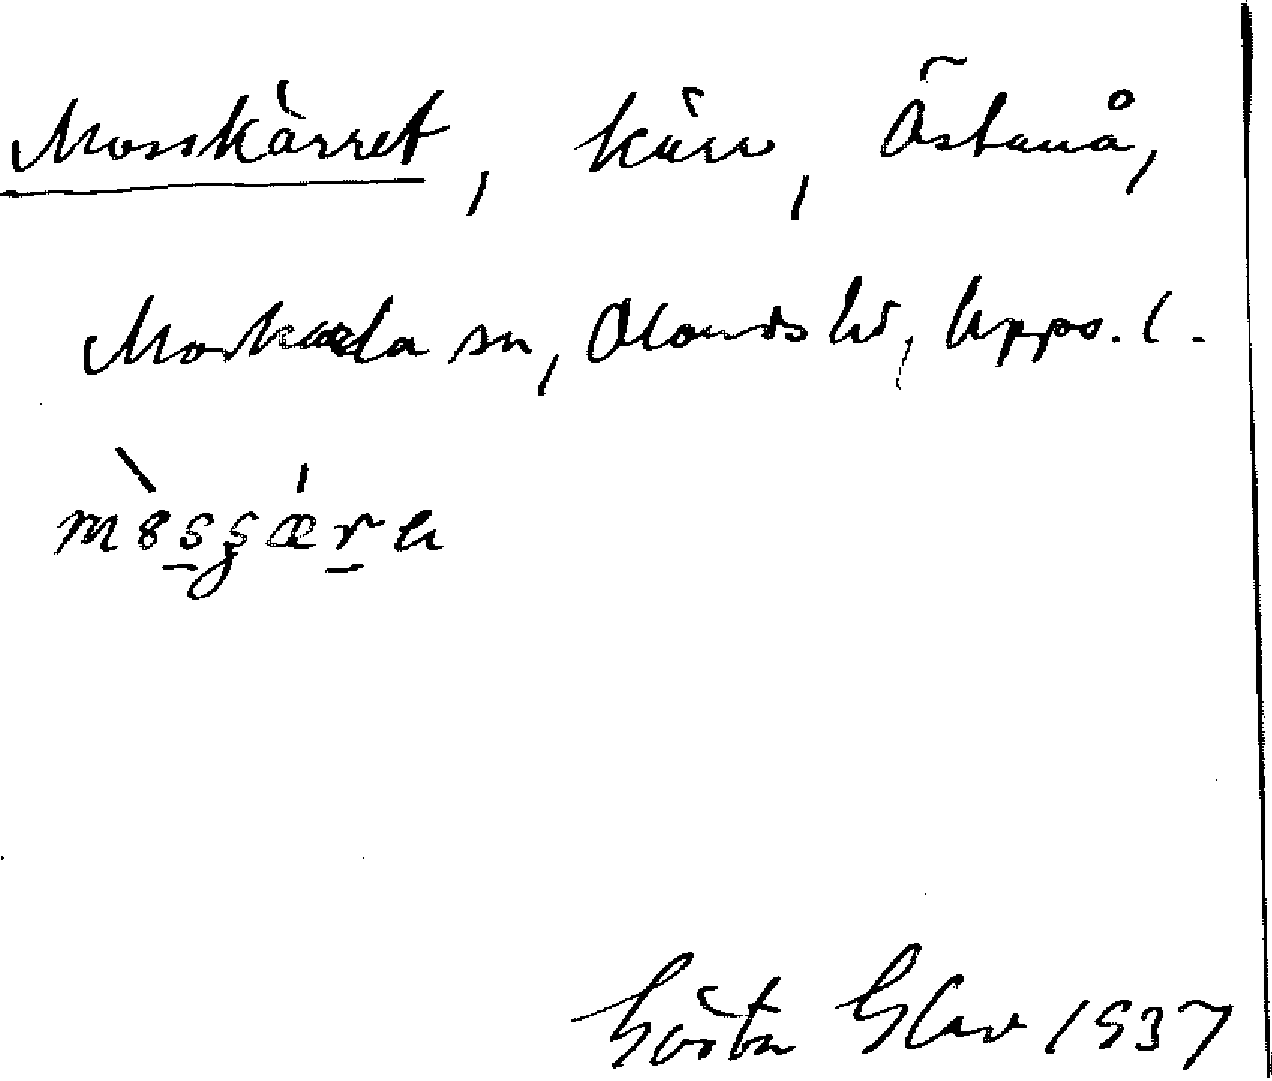 Mosskärret, kärr, Östanå,
Morkarla sn, Olands hd, Upps. l.
mòsgǽra
Gösta Glav 1937